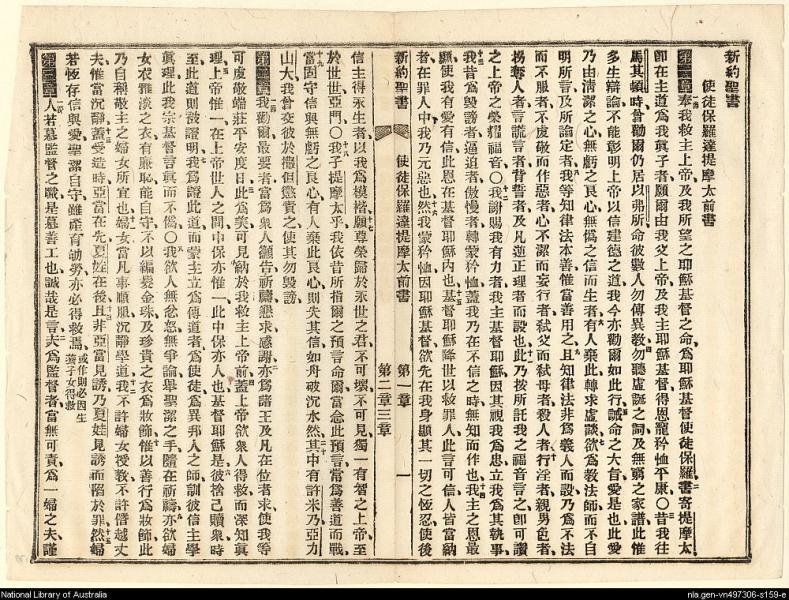 新約聖書
使徒保羅達提摩太前書
第一章 奉我救主上帝及我所望之耶穌基督之命爲耶穌基督使徒保羅書寄提摩太
即在主道爲我眞子者願爾由我父上帝及我主耶穌基督得恩寵矜恤平康〇昔我往
馬其頓時曾勸爾仍居以弗所命彼數人勿傳異教勿聽虛誕之詞及無窮之家譜此惟
多生辯論不能彰明上帝以信建德之道我今亦勸爾如此行誡命之大旨愛是也此愛
乃由清潔之心無虧之良心無僞之信而生者有人棄此轉求虛談欲爲教法師而不自
明所言及所論定者我等知律法本善惟當善用之且知律法非爲義人而設乃爲不法
而不服者不虔敬而作惡者心不潔而妄行者弒父而弒母者殺人者行淫者親男色者
拐奪人者言謊言者背誓者及凡逆正理者而設也此乃按所託我之福音言之即可讚
之上帝之榮耀福音〇我謝賜我有力者我主基督耶穌因其視我爲忠立我爲其執事
我昔爲毀謗者逼迫者傲慢者轉蒙矜恤蓋我乃在不信之時無知而作也我主之恩最
顯使我有愛有信此恩在基督耶穌內也基督耶穌降世以救罪人此言可信人皆當納
者在罪人中我乃元惡也然我蒙矜恤因耶穌基督欲先在我身顯其一切之恆忍使後
新約聖書
使徒保羅達提摩太前書
第一章
第二章三章
一
信主得永生者以我爲模楷願尊榮歸於永世之君不可壞不可見獨一有智之上帝至
於世世亞門〇我子提摩太乎我依昔所指爾之預言命爾當念此預言常爲善道而戰
當固守信與無虧之良心有人棄此良心則失其信如舟破沉水然其中有許米乃亞力
山大我曾交彼於撒但懲責之使其勿毀謗
第二章 我勸爾最要者當爲衆人籲告祈禱懇求感謝亦爲諸王及凡在位者求使我等
可虔敬端莊平安度日此爲美可見納於我救主上帝前蓋上帝欲衆人得救而深知眞
理上帝惟一在上帝世人之間中保亦惟一此中保亦人也基督耶穌是彼捨己贖衆時
至此道則被證明我爲證此道而蒙主立爲傳道者爲使徒爲異邦人之師訓彼信主學
眞理此我宗基督言眞而不僞〇我欲人無忿怒無爭論舉聖潔之手隨在祈禱亦欲婦
女衣雅淡之衣有廉恥能自守不以編髮金珠及珍貴之衣爲妝飾惟以善行爲妝飾此
乃自稱敬主之婦女所宜也婦女當凡事順服沉靜學道我不許婦女授教不許僭越丈
夫惟當沉靜蓋受造時亞當在先夏娃在後且非亞當見誘乃夏娃見誘而陷於罪然婦
若恆存信與愛聖潔自守雖產育劬勞亦必得救焉 或作則必因生善子女得救
第三章 人若慕監督之職是慕善工也誠哉是言夫爲監督者當無可責爲一婦之夫謹
National Library of Australia
nla.gen-vn497306-s159-e